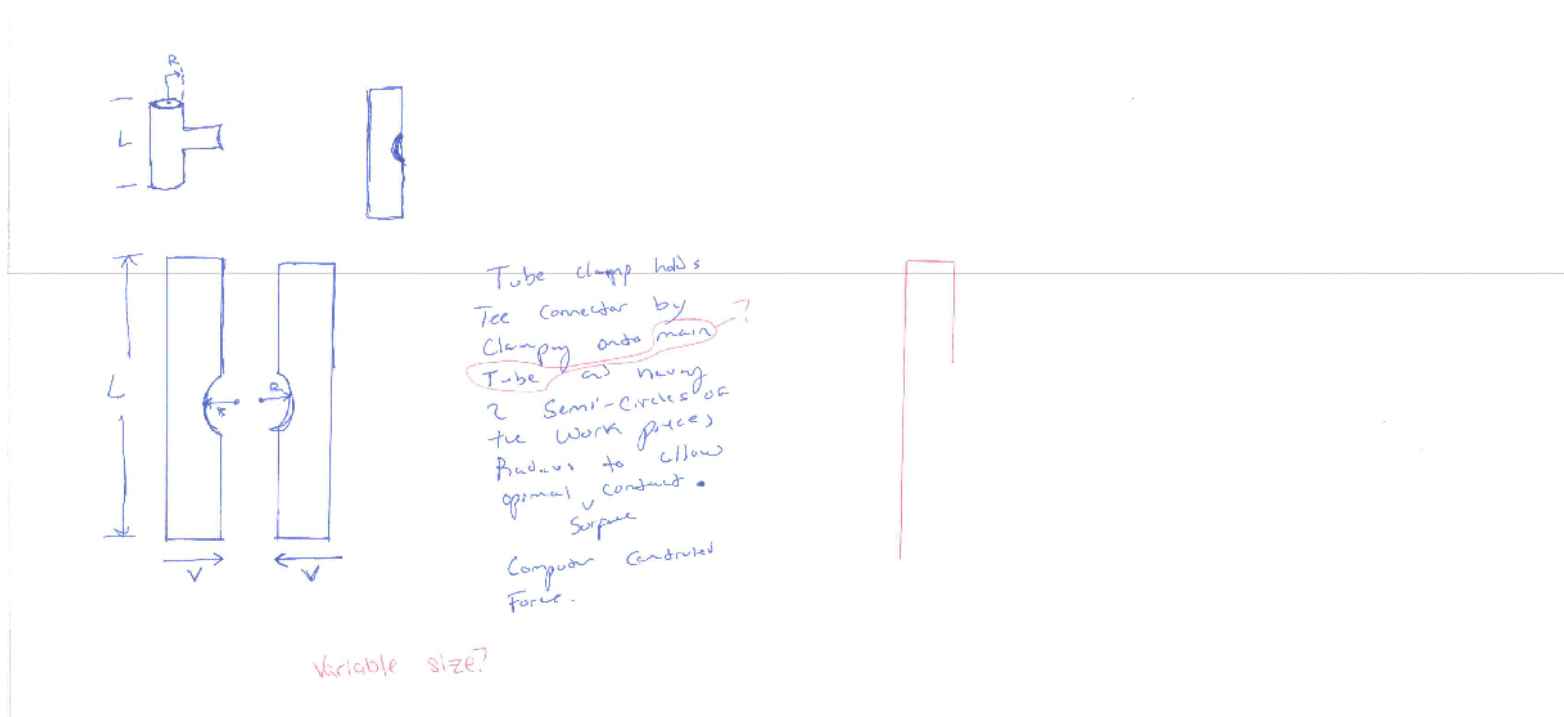 R
L
L
R
R
V
V
Tube clamp holds
Tee connector by
Clamping onto main ?
Tube and having
2 Semi-circles of
the work pieces
Radius to allow
optimal contact.
Surface
Computer controlled
Force.
Variable size?